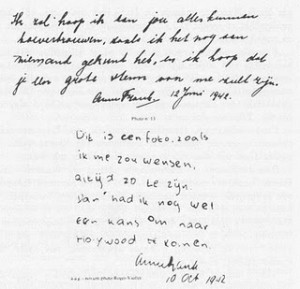 Ik zal hoop ik aan jou alles kunnen
toevertrouwen, zoals ik het nog aan
niemand gekund heb, en ik hoop dat
je een grote steun van me zult zijn.
Anne Frank. 12 Juni 1942.
Dit is een foto, zoals
ik me zou wensen,
altijd zo te zijn.
Dan had ik nog wel
een kans om naar
Holywood te komen.
Anne Frank
10 Oct 1942